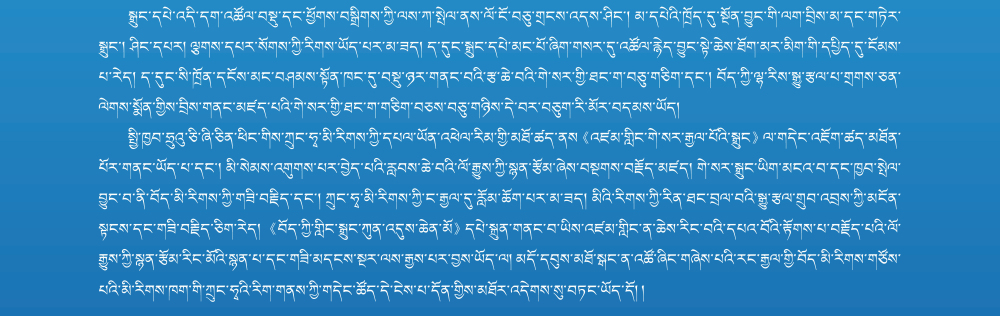 སྒྲུང་དཔེ་འདི་དག་འཚོལ་བསྡུ་དང་ཕྱོགས་བསྒྲིགས་ཀྱི་ལས་ཀ་སྤེལ་ནས་ལོ་ངོ་བཅུ་གྲངས་འདས་ཤིང་། མ་དཔེའི་ཁྲོད་དུ་སྔོན་བྱུང་གི་ལག་བྲིས་མ་དང་གཏེར་
སྒྲུང་། ཤིང་དཔར། ལྕགས་དཔར་སོགས་ཀྱི་རིགས་ཡོད་པར་མ་ཟད། ད་དུང་སྒྲུང་དཔེ་མང་པོ་ཞིག་གསར་དུ་འཚོལ་རྙེད་བྱུང་སྟེ་ཆེས་ཐོག་མར་མིག་གི་དཔྱིད་དུ་ངོམས་
པ་རེད། ད་དུང་སི་ཁྲོན་དངོས་མང་བཤམས་སྟོན་ཁང་དུ་བསྡུ་ཉར་གནང་བའི་རྩ་ཆེ་བའི་གེ་སར་གྱི་ཐང་ག་བཅུ་གཅིག་དང་། བོད་ཀྱི་ལྷ་རིས་སྒྱུ་རྩལ་པ་གྲགས་ཅན་
ལེགས་སྨོན་གྱིས་བྲིས་གནང་མཛད་པའི་གེ་སར་གྱི་ཐང་ག་གཅིག་བཅས་བཅུ་གཉིས་དེ་བར་བཅུག་རི་མོར་བདམས་ཡོད།
སྤྱི་ཁྱབ་ཧྲུའུ་ཅི་ཞི་ཅིན་ཕིང་གིས་ཀྲུང་ཧྭ་མི་རིགས་ཀྱི་དཔལ་ཡོན་འཕེལ་རིམ་གྱི་མཐོ་ཚད་ནས《འཛམ་གླིང་གེ་སར་རྒྱལ་པོའི་སྒྲུང》ལ་གདེང་འཇོག་ཚད་མཐོན་
པོར་གནང་ཡོད་པ་དང་། མི་སེམས་འགུགས་པར་བྱེད་པའི་རླབས་ཆེ་བའི་ལོ་རྒྱུས་ཀྱི་སྙན་རྩོམ་ཞེས་བསྔགས་བརྗོད་མཛད། གེ་སར་སྒྲུང་ཡིག་མངའ་བ་དང་ཁྱབ་སྤེལ་
བྱུང་བ་ནི་བོད་མི་རིགས་ཀྱི་གཟི་བརྗིད་དང་། ཀྲུང་ཧྭ་མི་རིགས་ཀྱི་ང་རྒྱལ་དུ་རློམ་ཆོག་པར་མ་ཟད། མིའི་རིགས་ཀྱི་རིན་ཐང་བྲལ་བའི་སྒྱུ་རྩལ་གྲུབ་འབྲས་ཀྱི་མངོན་
སྟངས་དང་གཟི་བརྗིད་ཅིག་རེད།《བོད་ཀྱི་གླིང་སྒྲུང་ཀུན་འདུས་ཆེན་མོ》དཔེ་སྐྲུན་གནང་བ་ཡིས་འཛམ་གླིང་ན་ཆེས་རིང་བའི་དཔའ་བོའི་རྟོགས་པ་བརྗོད་པའི་ལོ་
རྒྱུས་ཀྱི་སྙན་རྩོམ་རིང་མོའི་སྙན་པ་དང་གཟི་མདངས་སྔར་ལས་རྒྱས་པར་བྱས་ཡོད་ལ། མདོ་དབུས་མཐོ་སྒང་ན་འཚོ་ཞིང་གཞེས་པའི་རང་རྒྱལ་གྱི་བོད་མི་རིགས་གཙོས་
པའི་མི་རིགས་ཁག་གི་ཀྲུང་ཧྭའི་རིག་གནས་ཀྱི་གདེང་ཚོད་དེ་ངེས་པ་དོན་གྱིས་མཐོར་འདེགས་སུ་བཏང་ཡོད་དོ། །